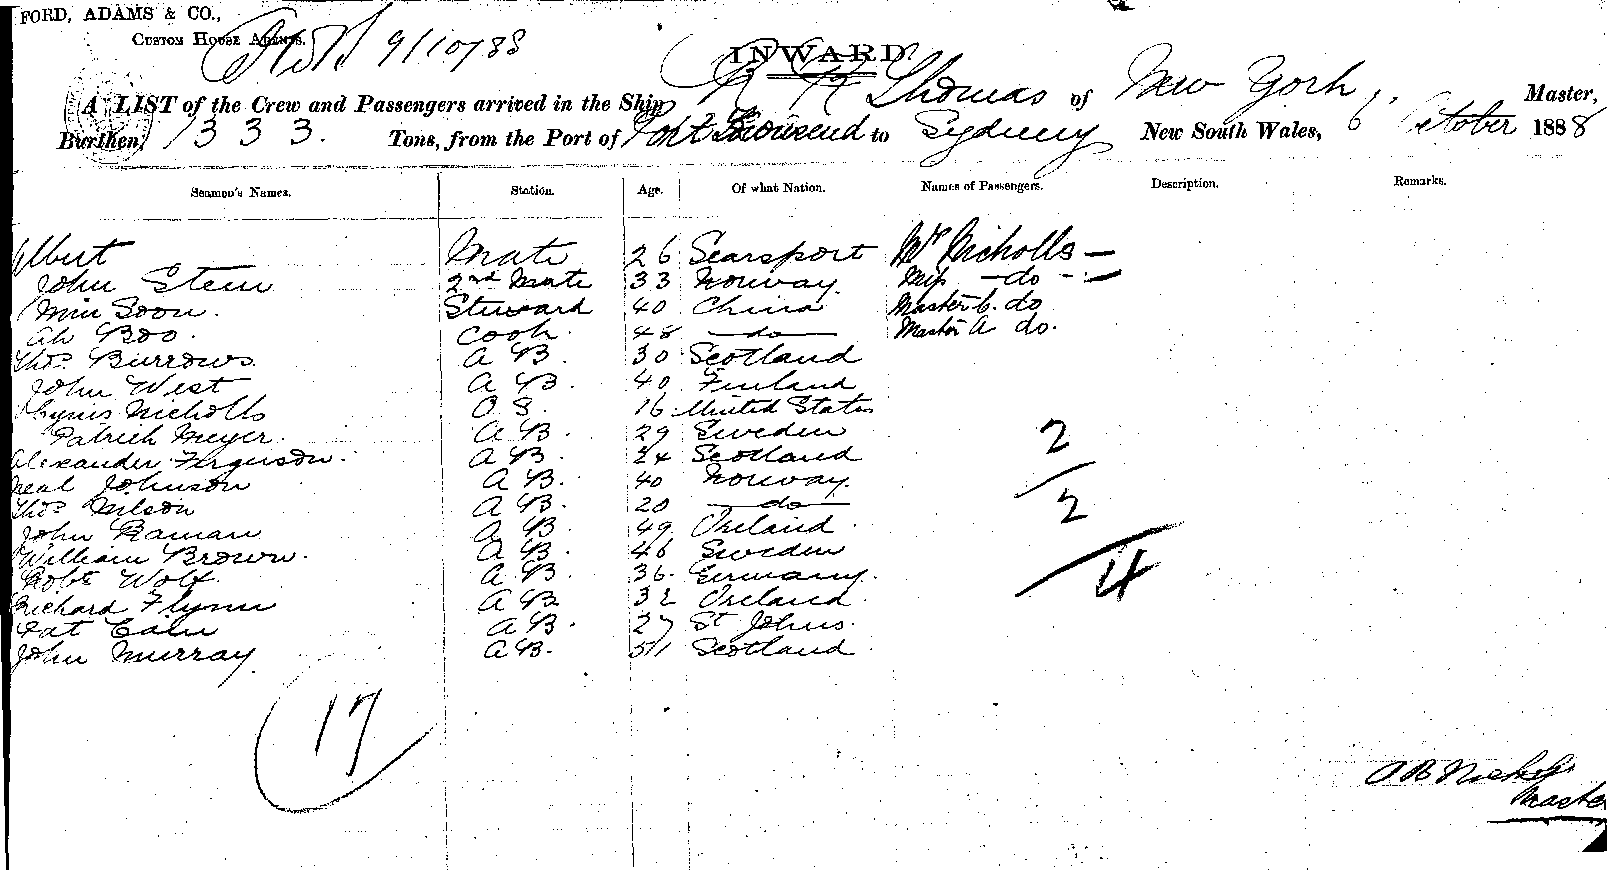 FORD, ADAMS & CO.,
CUSTOM HOUSE AGENTS.
9/10/88
INWARD.
A LIST of the Crew and Passengers arrived in the Ship R R Thomas of New York, Master,
Burthen, 1333. Tons, from the Port of Port Townsend to Sydney New South Wales, 6 October 1888
Seamen's Names. Station. Age. Of what Nation. Names of Passengers. Description. Remarks.
Albert Mate 26 Searsport Mrs Nicholls —
John Stein 2nd Mate 33 Norway. Miss — do - —
Min Soon. Steward 40 China Master C. do
Ah Boo. Cook. 48 — do — Master A do.
Thos Burrows. A B. 30 Scotland
John West A B. 40 Finland
Nicholls O S. 16 United States
Patrick Meyer. A B. 29 Sweden 2
Alexander Ferguson. A B. 24 Scotland
Neal Johnson A B. 40 Norway.
Thos Nilson A B. 20 — do — 2
John A B. 49 Ireland
William Brown. A B. 46 Sweden
Robt Wolf. A B. 36. Germany. 4
Richard Flynn A B 32 Ireland.
Pat A B. 27 St Johns.
John Murray A B. 51 Scotland
17
A B Nichols
Master